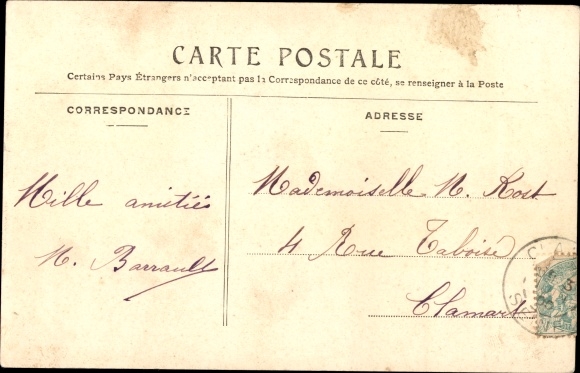 CARTE POSTALE
Certains Pays Étrangers n'acceptant pas la Correspondance de ce côté, se renseigner à la Poste
CORRESPONDANCE
Mille amitiés
M. Barrault
ADRESSE
Mademoiselle M. Kost
4 Rue Taboise
Clamart